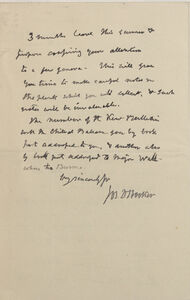 3 months leave this summer &
propose confining your attention
to a few genera. This will give
you time to make careful notes on
the plants which you will collect, & such
notes will be invaluable.
The numbers of the Kew Bulletin
with the Chitral Balsam you by book
post addressed to you, & another also
by book post addressed to Major Wall-
Burma
very sincerely yrs
Jos. D Hooker